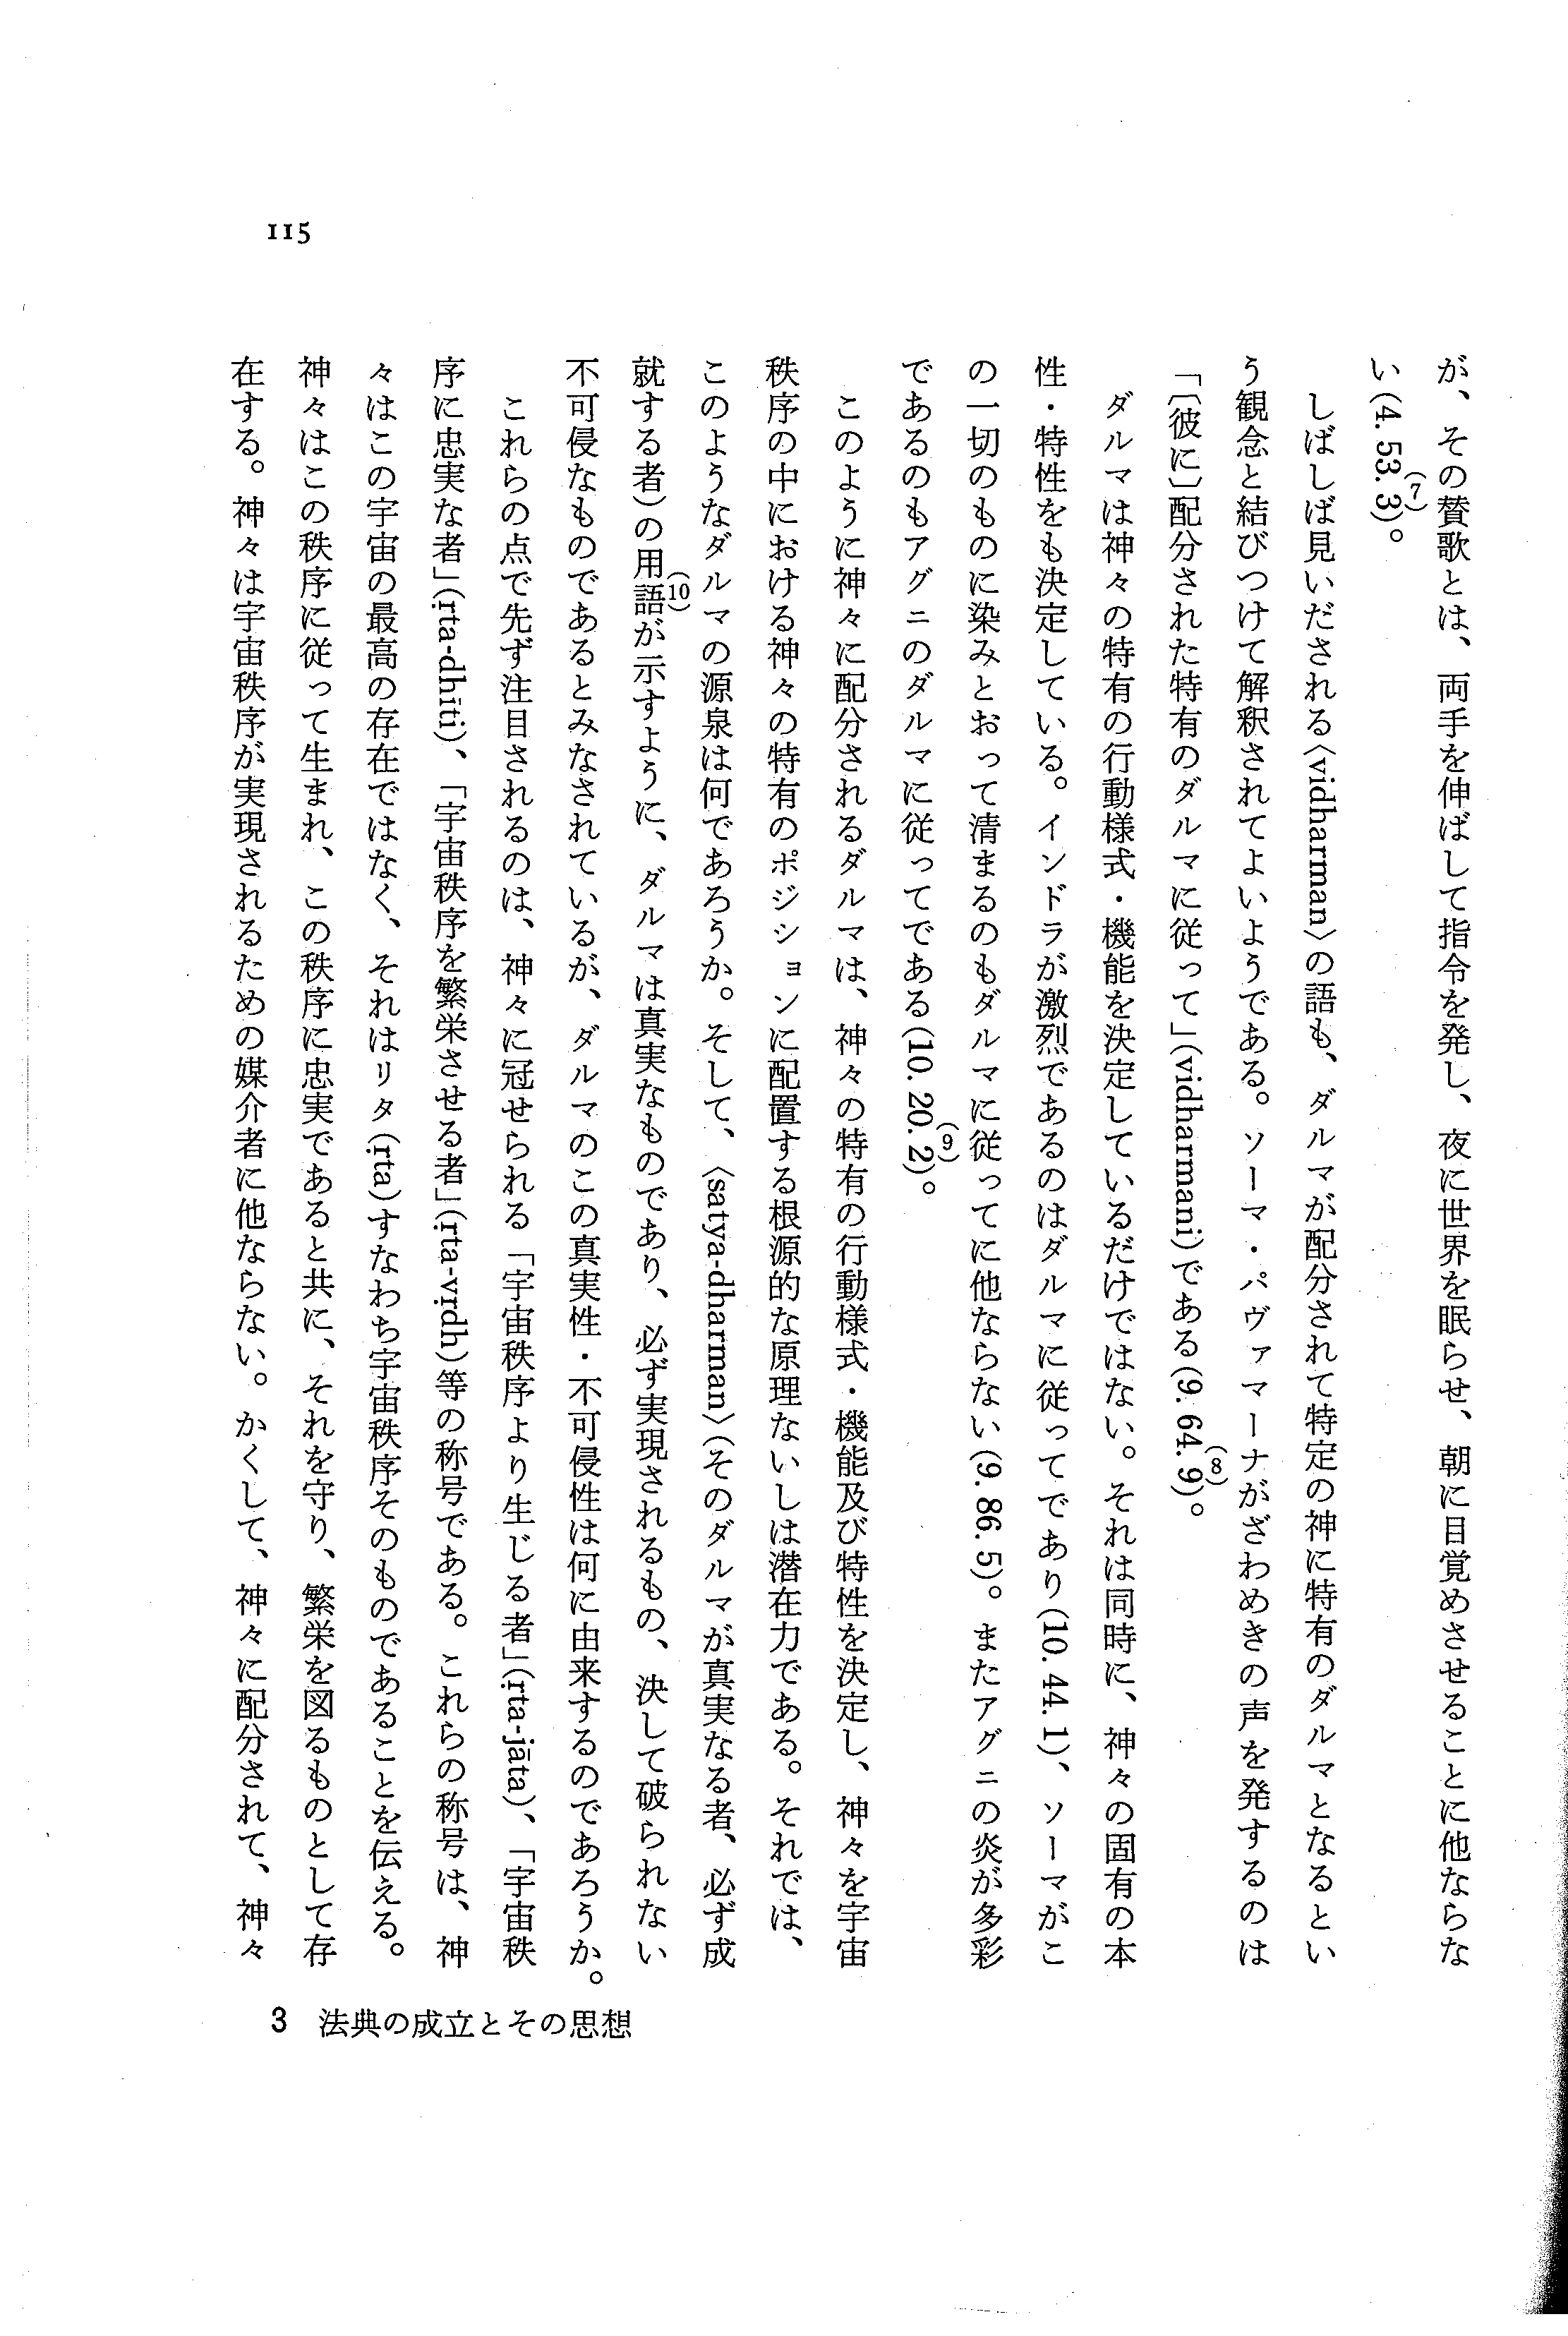 が、その賛歌とは、両手を伸ばして指令を発し、夜に世界を眠らせ、朝に目覚めさせることに他ならな
い(4. 53. 3)(7)。
しばしば見いだされる〈vidharman〉の語も、ダルマが配分されて特定の神に特有のダルマとなるとい
う観念と結びつけて解釈されてよいようである。ソーマ・パヴァマーナがざわめきの声を発するのは
「〔彼に〕配分された特有のダルマに従って」(vidharmani)である(9. 64. 9)(8)。
ダルマは神々の特有の行動様式・機能を決定しているだけではない。それは同時に、神々の固有の本
性・特性をも決定している。インドラが激烈であるのはダルマに従ってであり(10. 44. 1)、ソーマがこ
の一切のものに染みとおって清まるのもダルマに従ってに他ならない(9. 86. 5)。またアグニの炎が多彩
であるのもアグニのダルマに従ってである(10. 20. 2)(9)。
このように神々に配分されるダルマは、神々の特有の行動様式・機能及び特性を決定し、神々を宇宙
秩序の中における神々の特有のポジションに配置する根源的な原理ないしは潜在力である。それでは、
このようなダルマの源泉は何であろうか。そして、〈satya-dharman〉(そのダルマが真実なる者、必ず成
就する者)の用語(10)が示すように、ダルマは真実なものであり、必ず実現されるもの、決して破られない
不可侵なものであるとみなされているが、ダルマのこの真実性・不可侵性は何に由来するのであろうか。
これらの点で先ず注目されるのは、神々に冠せられる「宇宙秩序より生じる者」(ṛta-jāta)、「宇宙秩
序に忠実な者」(ṛta-dhīti)、「宇宙秩序を繁栄させる者」(ṛta-vṛdh)等の称号である。これらの称号は、神
々はこの宇宙の最高の存在ではなく、それはリタ(ṛta)すなわち宇宙秩序そのものであることを伝える。
神々はこの秩序に従って生まれ、この秩序に忠実であると共に、それを守り、繁栄を図るものとして存
在する。神々は宇宙秩序が実現されるための媒介者に他ならない。かくして、神々に配分されて、神々
115
3 法典の成立とその思想